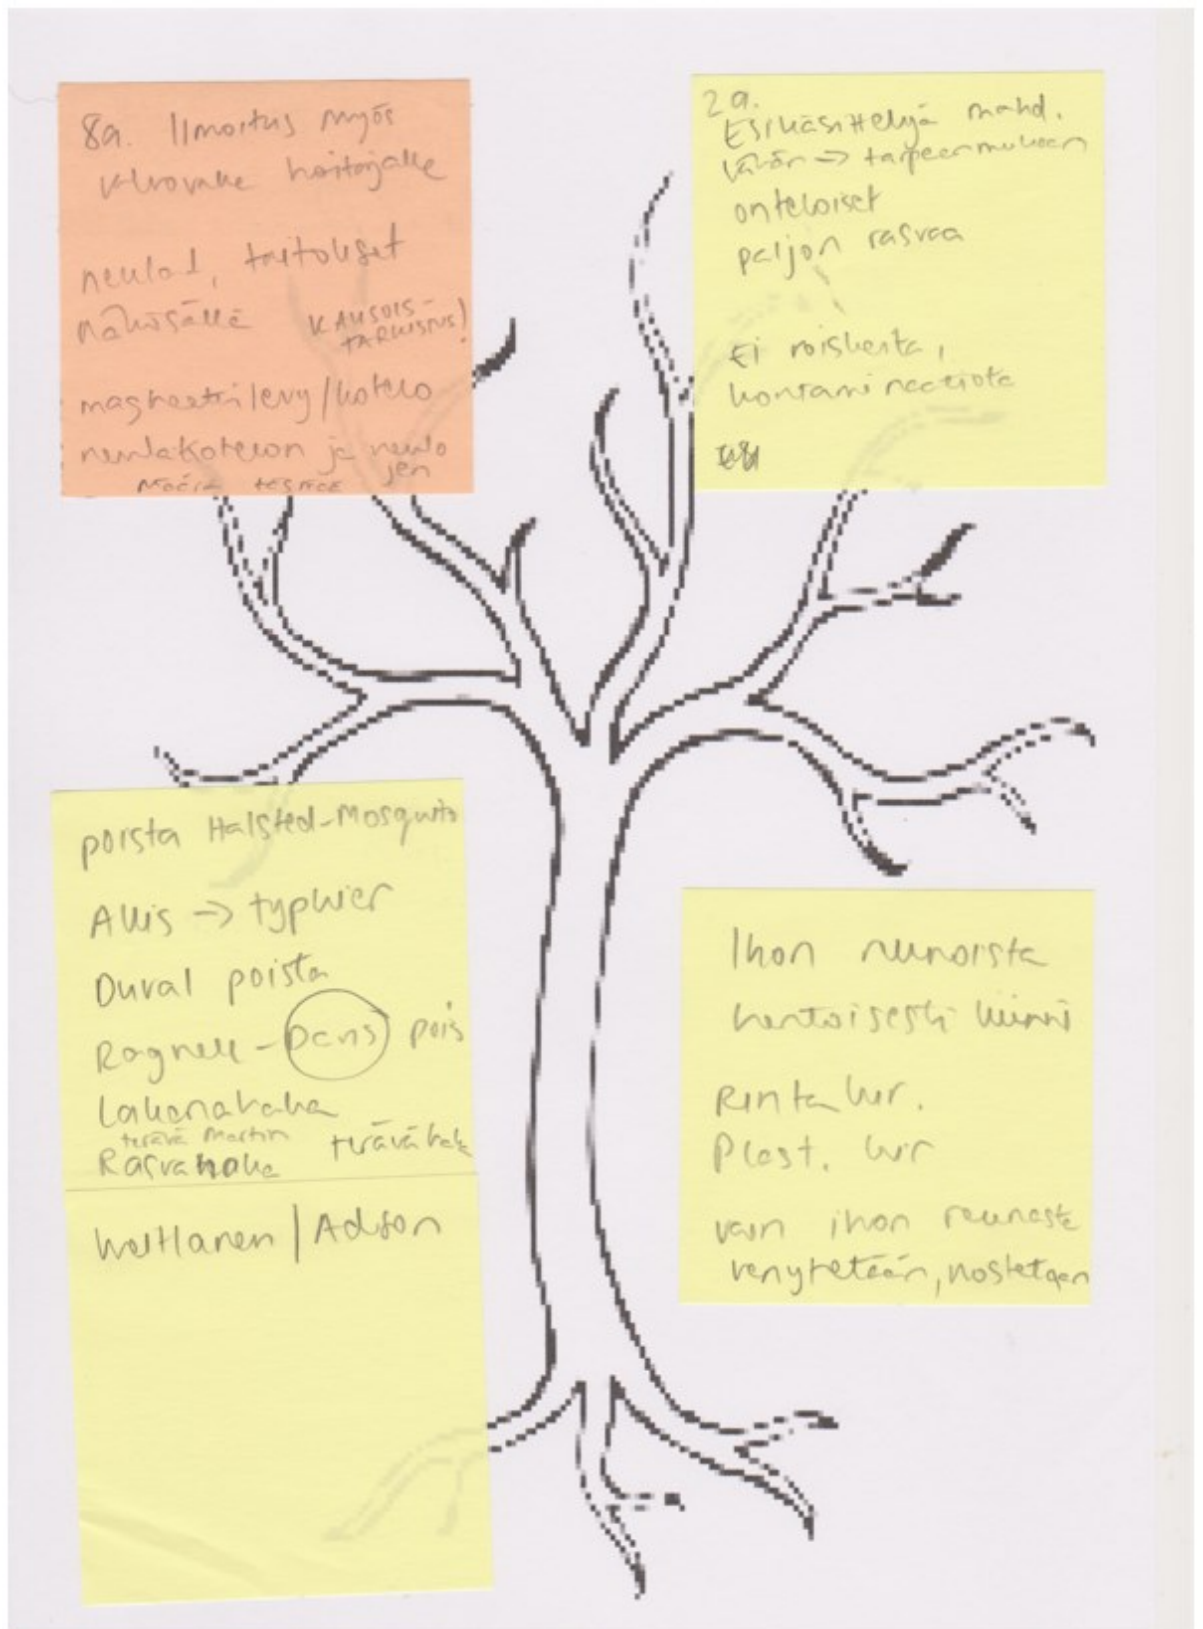 8a. Ilmoitus myös
valvovalle hoitajalle
neulat, taitokset
näkösällä KANSOIS-
TARKISTUS!
magneettilevy/kotelo
neulakotelon ja neulo
jen
määrä täsmää
2a.
Esikäsittelyä mahd.
vähän -> tarpeen mukaan
onteloiset
paljon rasvaa
Ei roisketta,
kontaminaatiota
poista Halsted-Mosquito
Allis -> typhier
Duval poista
Ragnell - Davis pois
Lakanahaka
terävä Martin terävä haka
Rasvahaka
Waltlanen / Adson
Ihon reunoista
hentoisesti kiinni
Rintakir.
Plast. kir
vain ihon reunasta
venytetään, nostetaan